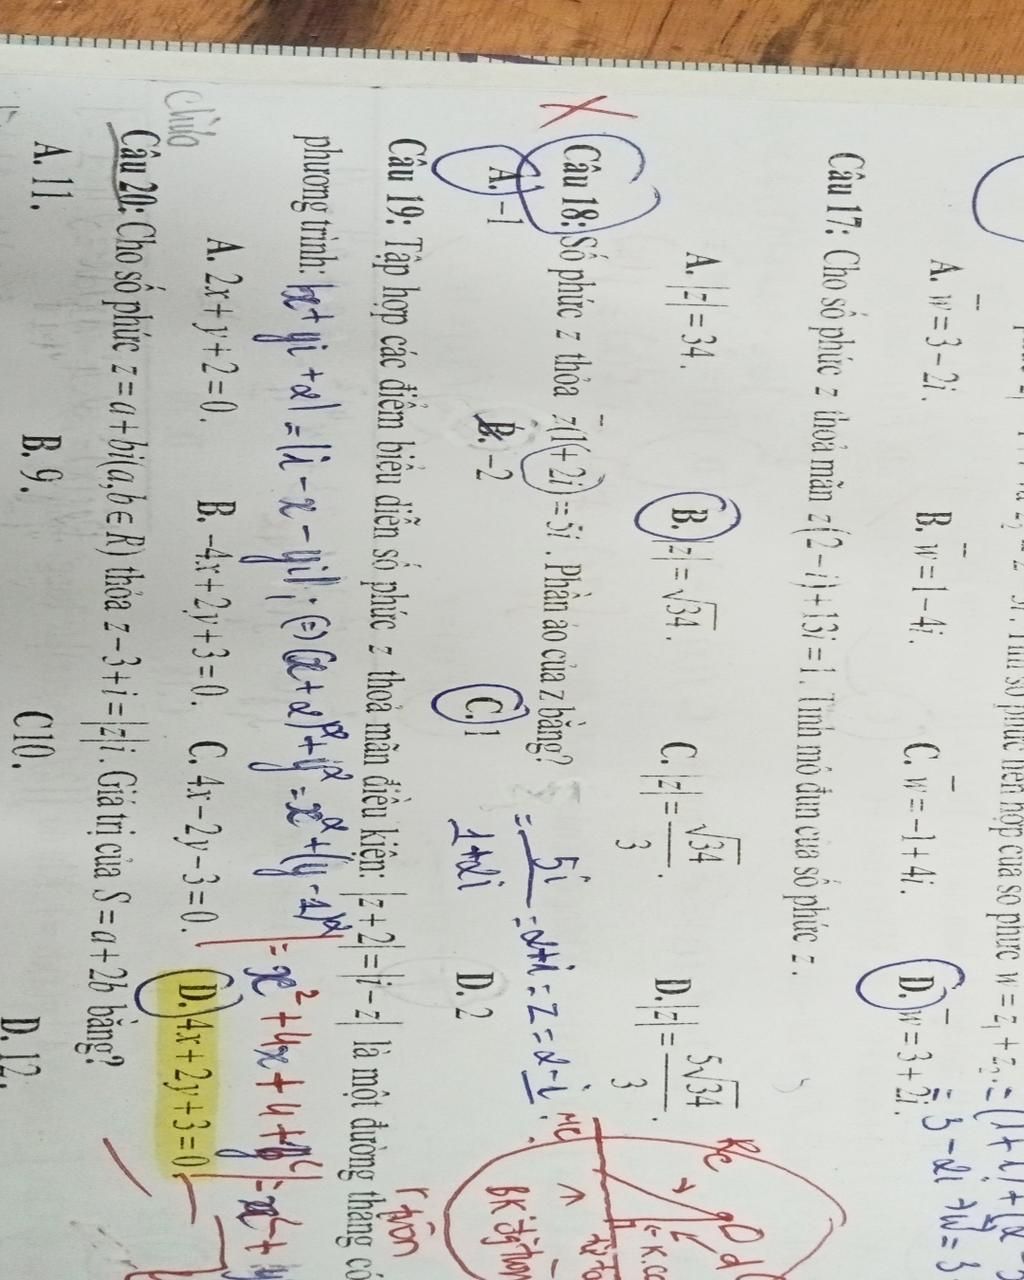 A. w̅ = 3 − 2i. B. w̅ = 1 − 4i. C. w̅ = −1 + 4i. D. w̅ = 3 + 2i.
Câu 17: Cho số phức z thoả mãn z(2 − i) + 13i = 1. Tính mô đun của số phức z.
A. |z| = 34. B. |z| = √34. C. |z| = √34/3. D. |z| = 5√34/3.
Câu 18: Số phức z thỏa z̅(1 + 2i) = 5i. Phần ảo của z bằng?
= 5i/1+2i = 2+i = z = 2 − i.
A. −1 B. −2 C. 1 D. 2
Câu 19: Tập hợp các điểm biểu diễn số phức z thoả mãn điều kiện: |z + 2| = |i − z| là một đường thẳng có
phương trình: |x + yi + 2| = |i − x − yi|; (=) (x + 2)² + y² = x² + (y − 1)²
= x² + 4x + 4 + y² = x² +
A. 2x + y + 2 = 0. B. −4x + 2y + 3 = 0. C. 4x − 2y − 3 = 0. D. 4x + 2y + 3 = 0
Câu 20: Cho số phức z = a + bi(a,b ∈ R) thỏa z − 3 + i = |z|i. Giá trị của S = a + 2b bằng?
A. 11. B. 9. C10. D. 12.